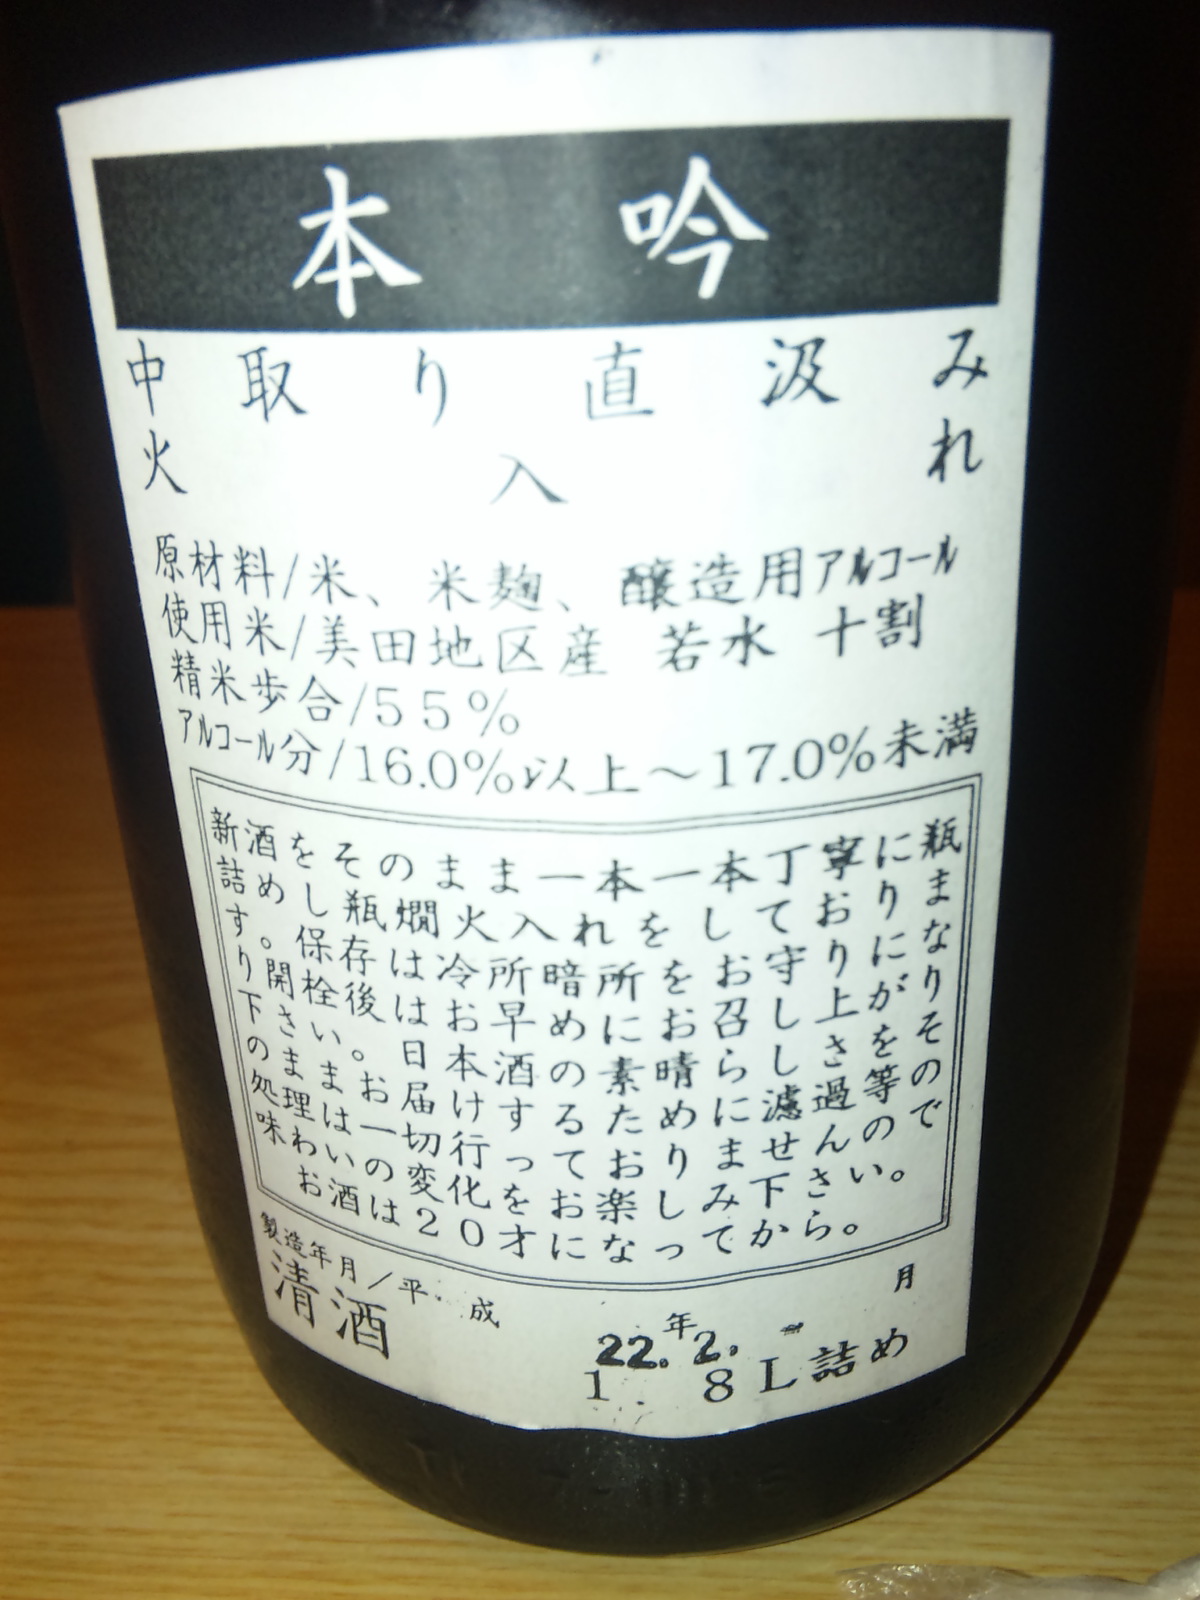 本吟
中取り直汲み
火入れ
原材料/米、米麹、醸造用アルコール
使用米/美田地区産 若水 十割
精米歩合/55%
アルコール分/16.0%以上～17.0%未満
新酒をそのまま一本一本丁寧に瓶
詰めし瓶燗火入れをしておりま
す。保存は冷所暗所をお守りにな
り開栓後はお早めにお召し上がり
下さい。日本酒の素晴らしさをそ
のままお届けするために濾過等の
処理は一切行っておりませんので
味わいの変化をお楽しみ下さい。
お酒は20才になってから。
製造年月/平成22.年2.月
清酒 1.8L詰め